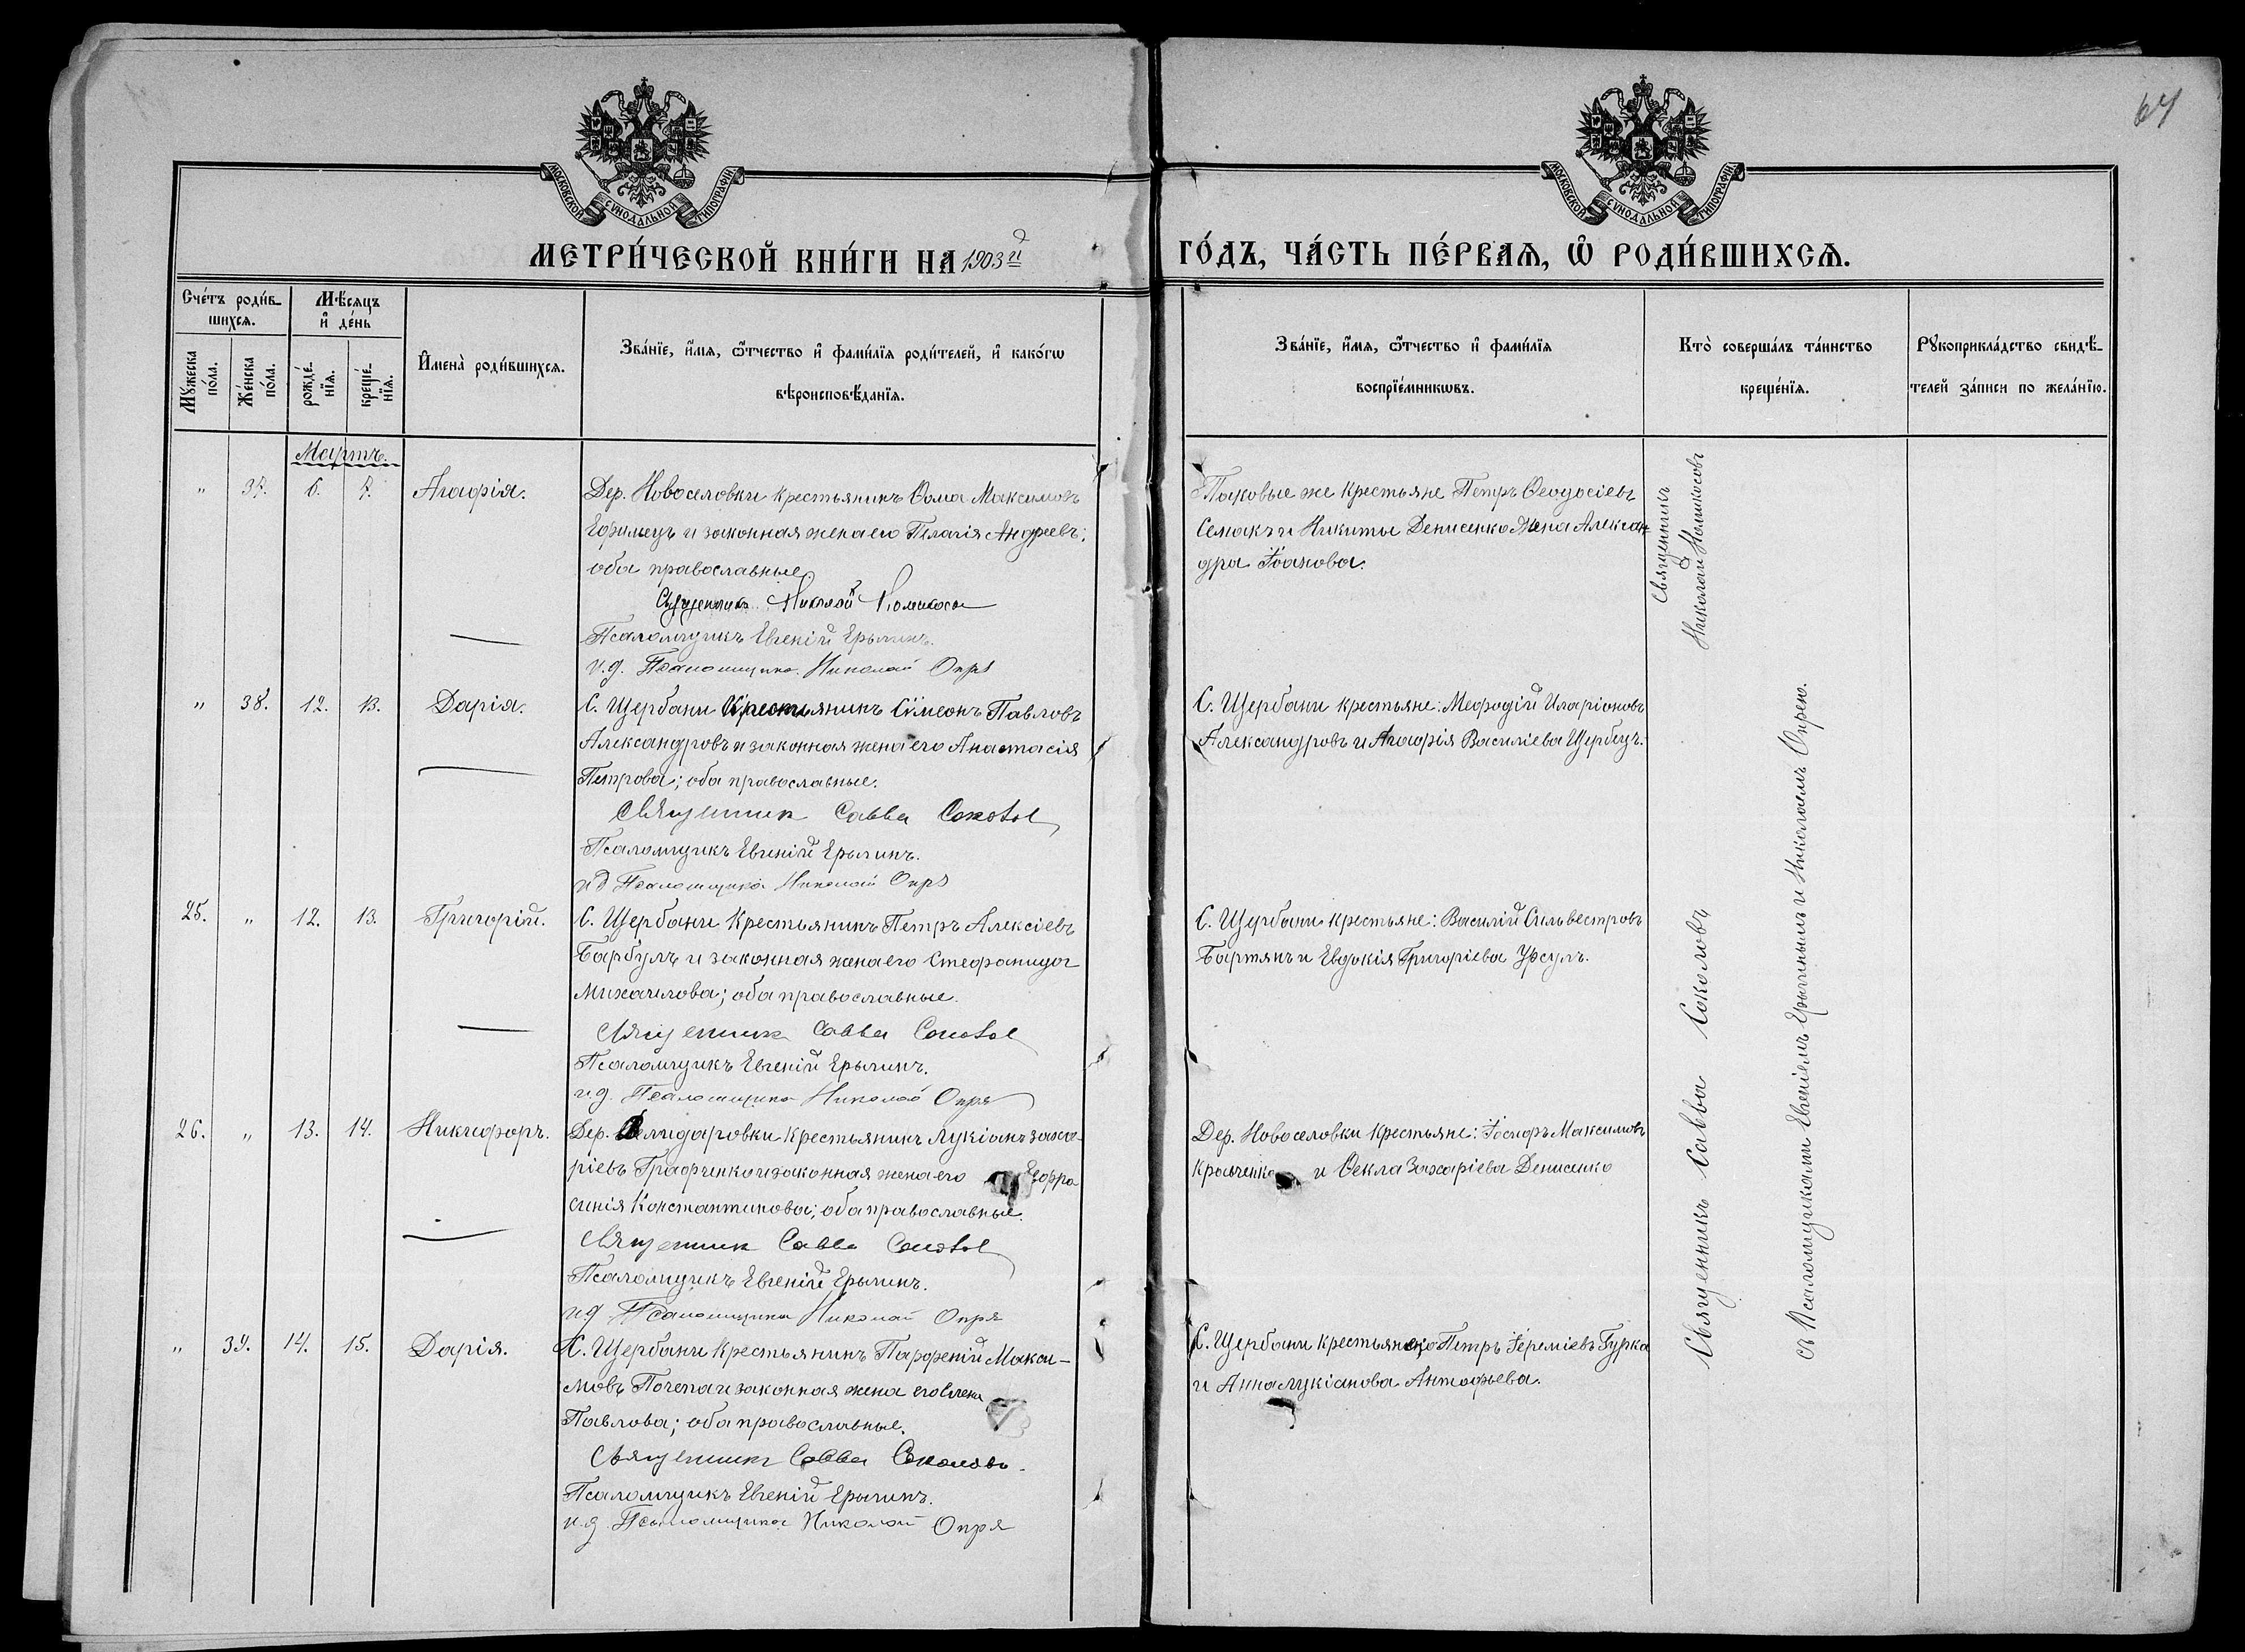 64
МОСКОВСКОЙ СѴНОДАЛЬНОЙ ТИПОГРАФІИ
МОСКОВСКОЙ СѴНОДАЛЬНОЙ ТИПОГРАФІИ
МЕТРИ́ЧЕСКОЙ КНИ́ГИ НА 1903й
ГО́ДЪ, ЧА́СТЬ ПЕ́РВАѦ, Ѡ҆ РОДИ́ВШИХСѦ.
Сче́тъ роди́в-
шихсѧ.
Мꙋ́жеска по́ла.
Же́нска по́ла.
Мѣ́сѧцъ
и҆ де́нь
рожде́-
нїѧ.
креще́-
нїѧ.
И҆мена̀ роди́вшихсѧ.
Зва́нїе, и҆́мѧ, ѻ҆́тчество и҆ фами́лїѧ роди́телей, и҆ како́гѡ
вѣроисповѣ́данїѧ.
Зва́нїе, и҆́мѧ, ѻ҆́тчество и҆ фами́лїѧ
воспрїе́мникѡвъ.
Кто̀ соверша́лъ та́инство
креще́нїѧ.
Рꙋкоприкла́дство свидѣ́-
телей за́писи по жела́нїю.
Мартъ.
" 37. 6. 7. Агафія.
Дер. Новоселовки крестьянинъ Ѳома Максимовъ
Ефимецъ и законная жена его Пелагія Андреевъ;
оба православные.
Священникъ Николай
Псаломщикъ Евгеній Ерыгинъ.
и.д. Псаломщика Николай Опря
Таковые же крестьяне Петръ Ѳеодосіевъ
Семакъ и Никиты Денисенко жена Алексан-
дра Іоанова.
Священникъ
Николай
" 38. 12. 13. Дарія.
С. Щербани Крестьянинъ Сѵмеонъ Павловъ
Александровъ и законная жена его Анастасія
Петрова; оба православные.
Священник Савва Соколов
Псаломщикъ Евгеній Ерыгинъ.
ид Псаломщика Николай Опря
С. Щербани крестьяне: Меѳодій Иларіоновъ
Александровъ и Агафія Василіева Щербецъ.
25. " 12. 13. Григорій.
С. Щербани Крестьянинъ Петръ Алексіевъ
Барбулъ и законная жена его Стефанида
Михаилова; оба православные.
Священник Савва Соколов
Псаломщикъ Евгеній Ерыгинъ.
и.д. Псаломщика Николай Опря
С. Щербани крестьяне: Василій Сильвестровъ
Бартянъ и Евдокія Григоріева Урсулъ.
26. " 13. 14. Никифоръ.
Дер. крестьянинъ Лукіанъ Заха-
ріевъ Графченко и законная жена его Ефро
синія Константинова; оба православные.
Священник Савва Соколов
Псаломщикъ Евгеній Ерыгинъ.
и.д Псаломщика Николай Опря
Дер. Новоселовки крестьяне: Іосифъ Максимовъ
и Ѳекла Захаріева Денисенко
" 39. 14. 15. Дарія.
С. Щербани Крестьянинъ Парфеній Макси-
мовъ Почепа и законная жена его Елена
Павлова; оба православные.
Священникъ Савва Соколовъ.
Псаломщикъ Евгеній Ерыгинъ.
и.д Псаломщика Николай Опря
С. Щербани Петръ Іереміевъ Гурка
и Анна Лукіанова Антофьева.
Священникъ Савва Соколовъ
съ Псаломщиками Евгеніемъ Ерыгинымъ и Николаемъ Опрею.